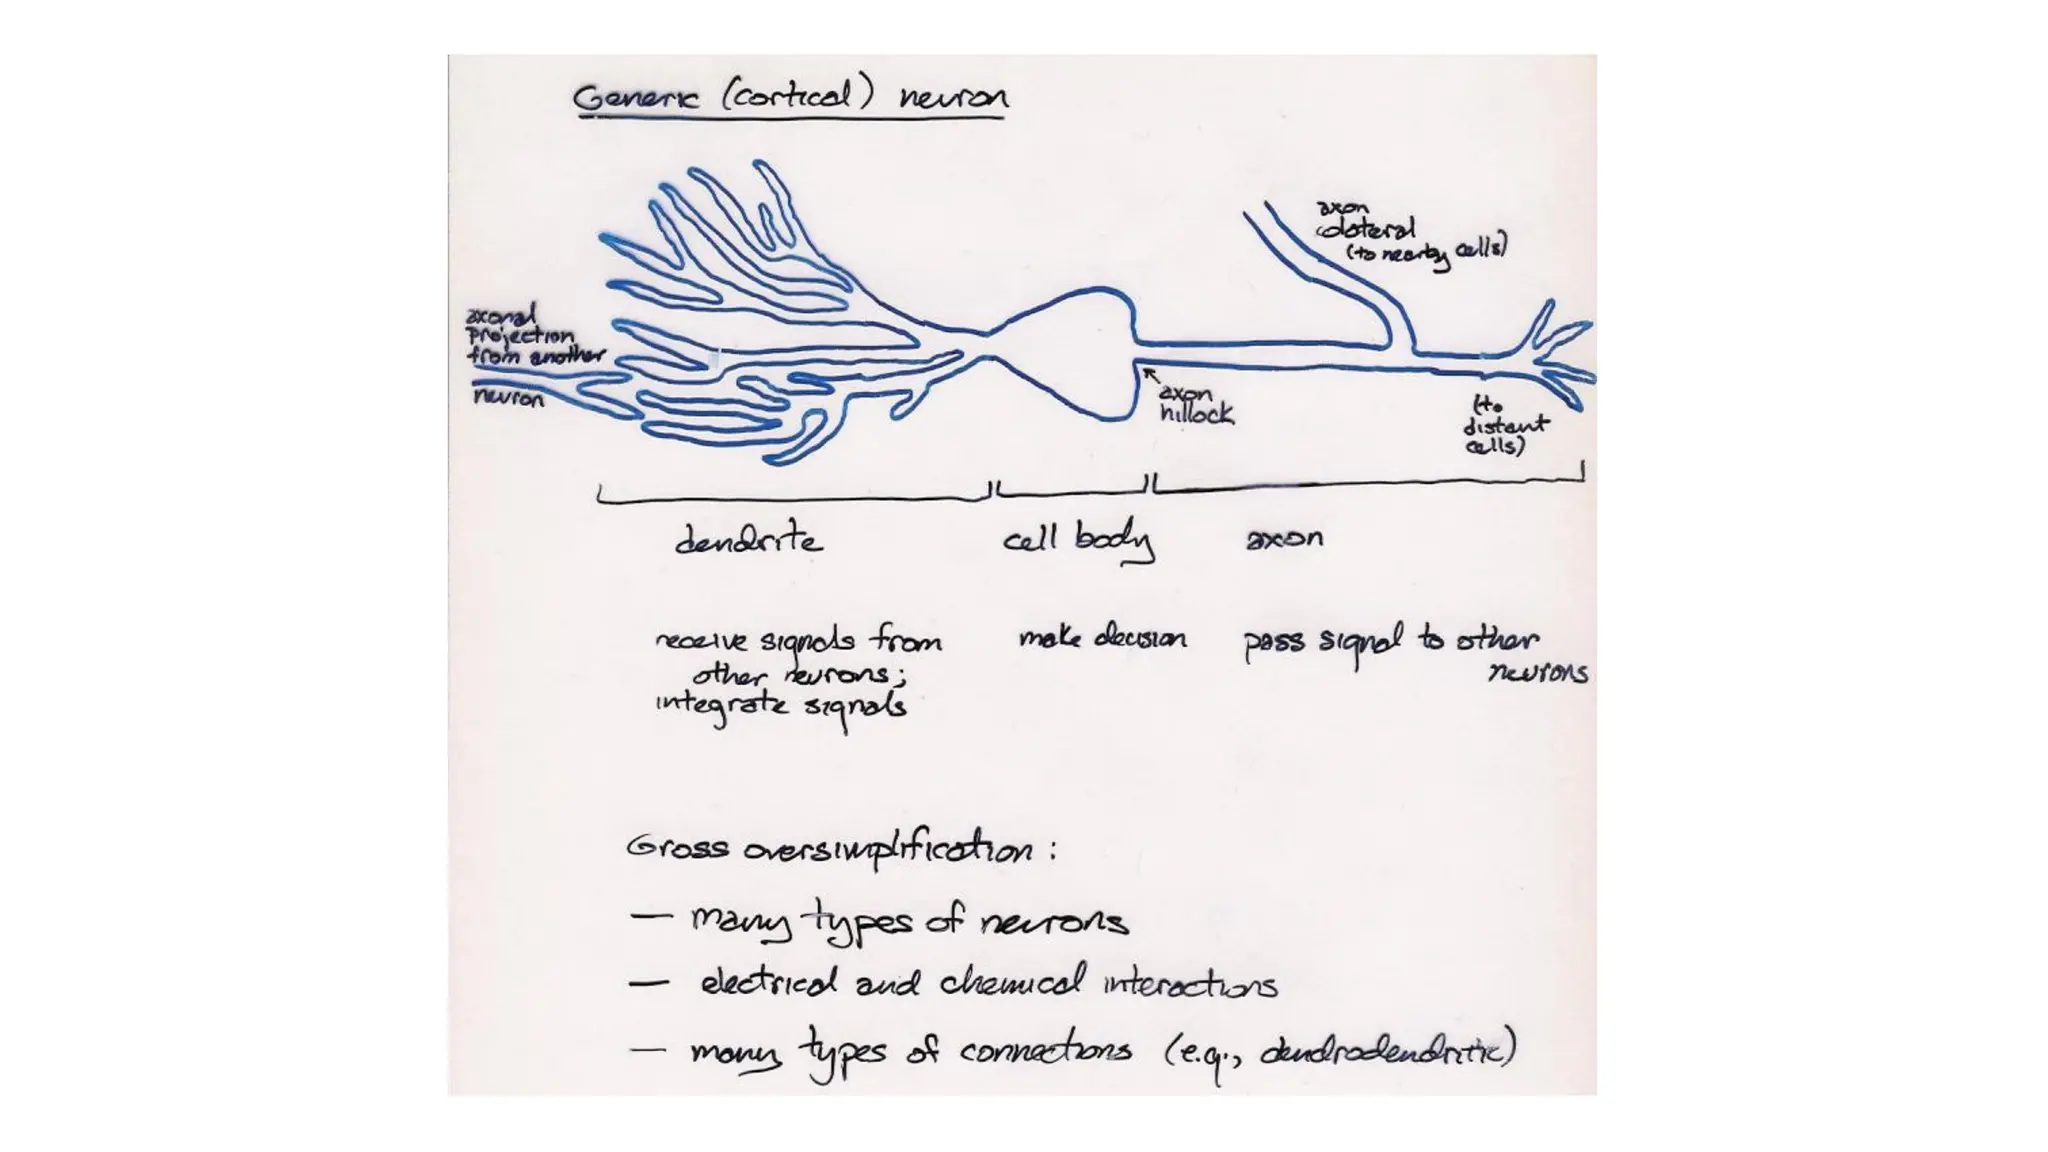 Generic (cortical) neuron
axon
colateral
(to nearby cells)
axonal
projection
from another
neuron
axon
hillock
(to
distant
cells)
dendrite
cell body
axon
receive signals from
other neurons;
integrate signals
make decision
pass signal to other
neurons
Gross oversimplification:
— many types of neurons
— electrical and chemical interactions
— many types of connections (e.g., dendrodendritic)